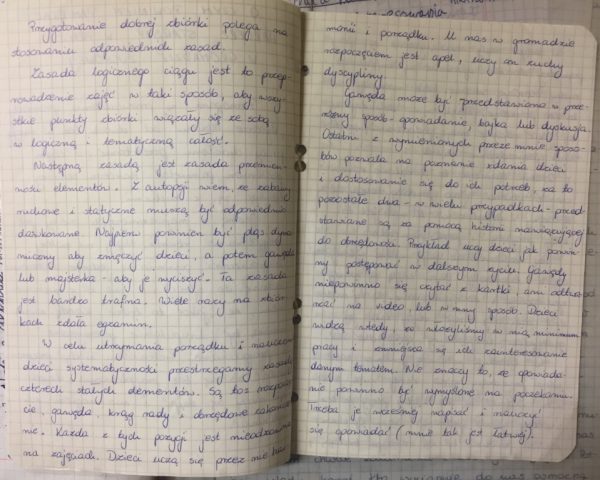 Przygotowanie dobrej zbiórki polega na
stosowaniu odpowiednich zasad.
Zasada logicznego ciągu jest to przep-
rowadzenie zajęć w taki sposób, aby wszy-
stkie punkty zbiórki wiązały się ze sobą
w logiczną i tematyczną całość.
Następną zasadą jest zasada przemien-
ności elementów. Z autopsji wiem, że zabawy
ruchowe i statyczne muszą być odpowiednio
dawkowane. Najpierw powinien być pląs dyna
miczny aby zmęczyć dzieci, a potem gawęda
lub majsterka - aby je wyciszyć. Ta zasada
jest bardzo trafna. Wiele razy na zbiór
kach zdała egzamin.
W celu utrzymania porządku i nauczenia
dzieci systematyczności przestrzegamy zasady
czterech stałych elementów. Są to: rozpoczę
cie, gawęda, krąg rady i obrzędowe zakończe
nie. Każda z tych pozycji jest nieodzowna
na zajęciach. Dzieci uczą się przez nie
monii i porządku. U nas w gromadzie
rozpoczęciem jest apel, uczy on zuchy
dyscypliny.
Gawęda może być przedstawiona w prze-
różny sposób - opowiadanie, bajka lub dyskusja.
Ostatni z wymienionych przeze mnie sposo-
bów pozwala na poznanie zdania dzieci
i dostosowanie się do ich potrzeb, za to
pozostałe dwa - w wielu przypadkach - przed-
stawiane są za pomocą historii nawiązującej
do obrzędowości. Przykład uczy dzieci jak powin-
ny postępować w dalszym życiu. Gawędy
nie powinno się czytać z kartki, ani odtwa
rzać na video, lub w inny sposób. Dzieci
widzą wtedy, że włożyliśmy w nią minimum
pracy i zmniejsza się ich zainteresowanie
danym tematem. Nie znaczy to, że opowiada-
nie powinno być wymyślone na poczekaniu.
Trzeba je wcześniej napisać i nauczyć
się opowiadać (mnie tak jest łatwiej).